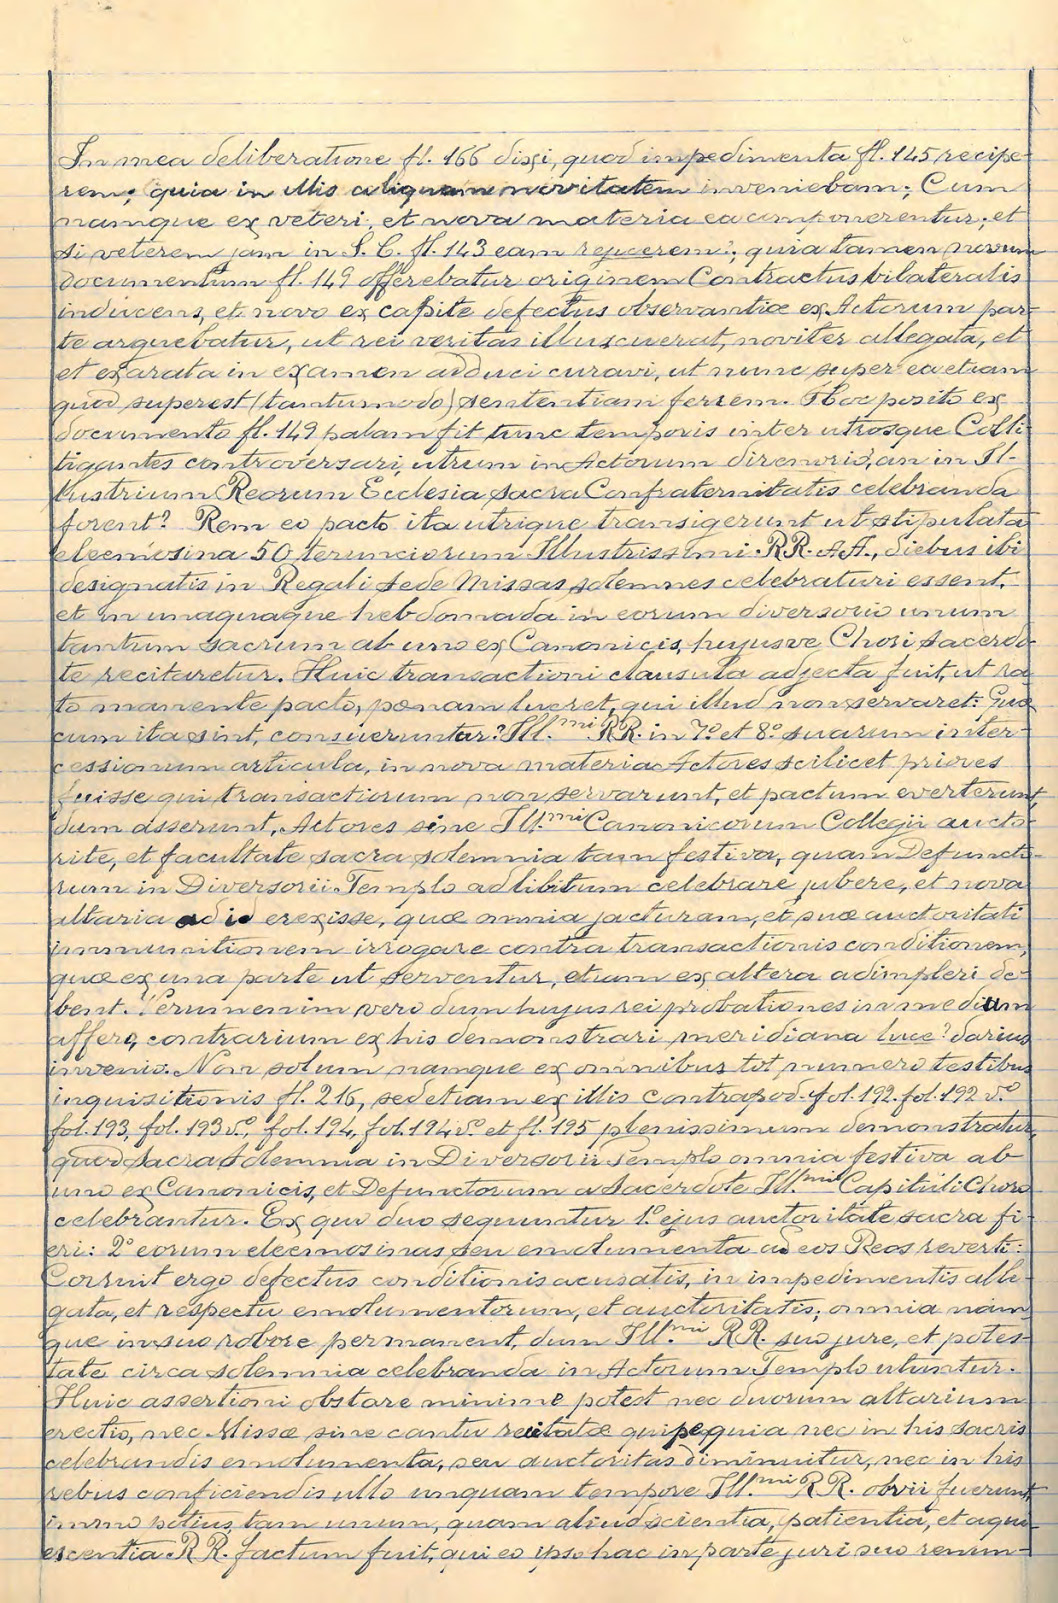 In mea deliberatione fl. 166 dixi, quod impedimenta fl. 145 recipe-
rem; quia in illis aliquam novitatem inveniebam; Cum
namque ex veteri, et nova materia ea componerentur; et
si veterem jam in S. C. fl. 143 eam rejicerem; quia tamen novum
documentum fl. 149 offerebatur originem Contractus bilateralis
inducens, et novo ex capite defectus observantiæ ex Actorum par-
te arguebatur, ut rei veritas illuscuerat, noviter allegata, et
et exarata in examen adduci curavi, ut nunc super ea etiam
quod superest (tantumodo) sententiam ferrem. Hoc posito ex
documento fl. 149 palam fit tunc temporis inter utrosque Colli-
tigantes controversari, utrum in Actorum diversorio, an in Il-
lustrium Reorum Ecclesia sacra Confraternitatis celebranda
forent? Rem eo pacto ita utrique transigerunt ut stipulata
eleemosina 50 terunciorum Illustrissimi RR. AA., diebus ibi
designatis in Regali sede Missas solemnes celebraturi essent,
et in unaquaque hebdomada in eorum diversorio unum
tantum sacrum ab uno ex Canonicis, hujusve Chori sacerdo-
te recitaretur. Huic transactioni clausula adjecta fuit, ut ra-
to manente pacto, pœnam lueret, qui illud non servaret: Quæ
cum ita sint, consueruntur? Ill.mi RR. in 7º et 8º suarum inter-
cessionum articula, in nova materia Actores scilicet priores
fuisse qui transactiorum non servarunt, et pactum everterunt,
dum asserunt, Actores sine Ill.mi Canonicorum Collegii aucto-
rite, et facultate sacra solemnia tam festiva, quam Defuncto-
rum in Diversorii Templo ad libitum celebrare jubere, et nova
altaria ad id erexisse, quæ omnia jacturam, et suæ auctoritati
imminutionem irrogare contra transactionis conditionem,
quæ ex una parte ut serventur, etiam ex altera adimpleri de-
bent. Verumenim vero dum hujus rei probationes in medium
affero, contrarium ex his demonstrari meridiana luce? darius
invenio. Non solum namque ex omnibus tot numero testibus
inquisitionis fl. 216, sed etiam ex illis contrapod. fol. 192. fol. 192 v.º
fol. 193, fol. 193 v.º, fol. 194, fol. 194 v.º et fl. 195 plenissimum demonstratur,
quod sacra solemnia in Diversorii Templo omnia festiva ab
uno ex Canonicis, et Defunctorum a Sacerdote Ill.mi Capituli Choro
celebrantur. Ex quo duo sequuntur 1.º ejus auctoritate sacra fi-
eri: 2º eorum eleemosinas seu emolumenta ad eos Reos reverti:
Corruit ergo defectus conditionis acusatis, in impedimentis alle-
gata, et respectu emolumentorum, et auctoritatis; omnia nam-
que in suo robore permanent, dum Ill.mi RR. suo jure, et potes-
tate circa solemnia celebranda in Actorum Templo utuntur.
Huic assertioni obstare minime potest nec duorum altarium
erectio, nec Missæ sine cantu recitatæ quipe quia nec in his sacris
celebrandis emolumenta, seu auctoritas diminuitur, nec in his
rebus conficiendis ullo unquam tempore Ill.mi RR. obvii fuerunt,
immo potius tam unum, quam aliud scientia, patientia, et aqui-
escentia RR. factum fuit, qui eo ipso hac in parte juri suo renun-